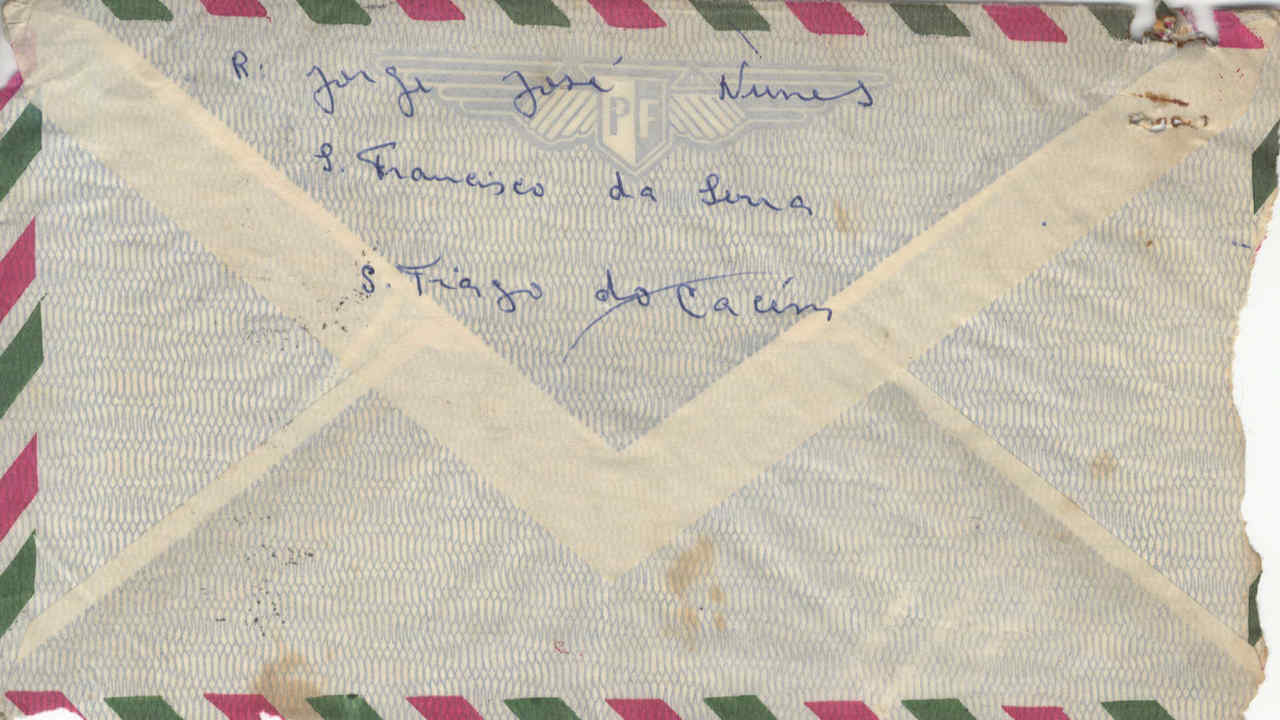 R. Jorge José Nunes
PF
S. Francisco da Serra
S. Tiago do Cacém